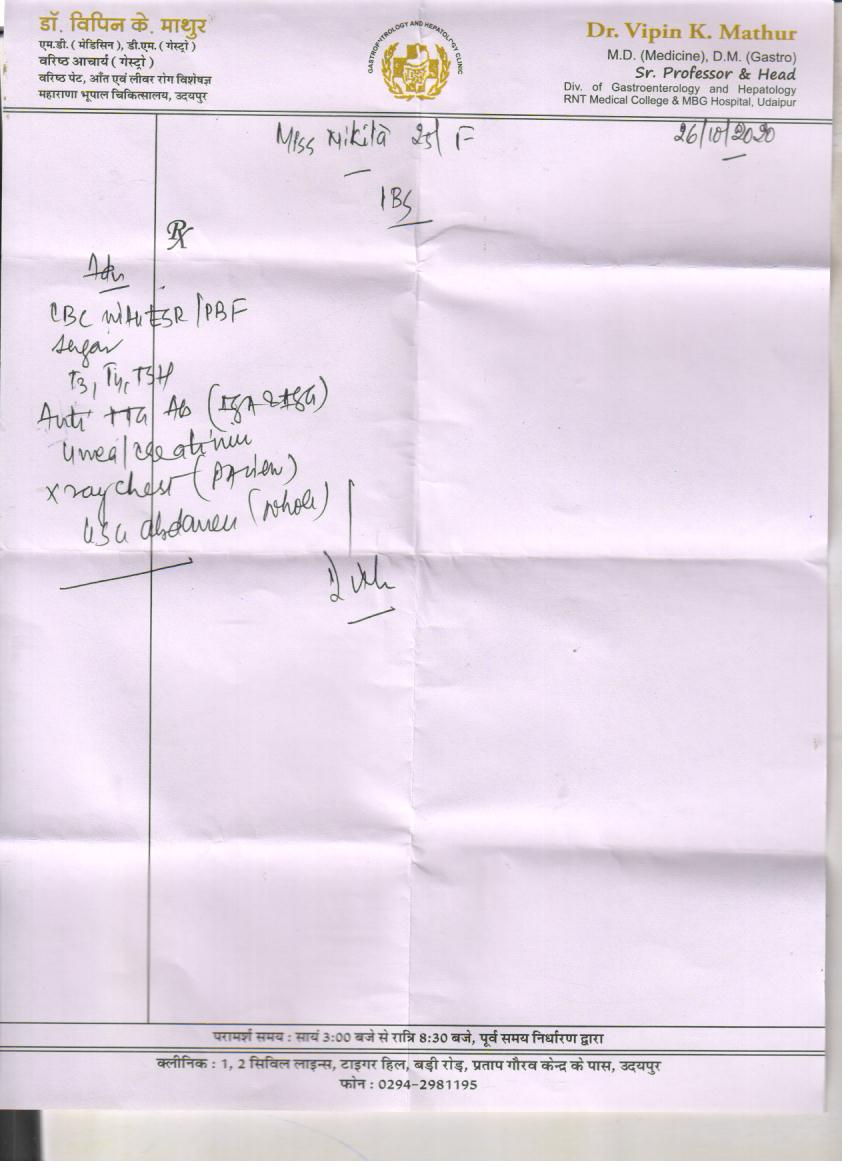 डॉ. विपिन के. माथुर
एम.डी. ( मेडिसिन ), डी.एम. ( गेस्ट्रो )
वरिष्ठ आचार्य ( गेस्ट्रो )
वरिष्ठ पेट, आँत एवं लीवर रोग विशेषज्ञ
महाराणा भूपाल चिकित्सालय, उदयपुर
GASTROENTROLOGY AND HEPATOLOGY CLINIC
Dr. Vipin K. Mathur
M.D. (Medicine), D.M. (Gastro)
Sr. Professor & Head
Div. of Gastroenterology and Hepatology
RNT Medical College & MBG Hospital, Udaipur
Miss Nikita 25/ F
26/10/2020
IBS
Rx
Adv
CBC with ESR / PBF
Sugar
T3, T4, TSH
Anti TTG Ab (IgA & IgG)
Urea / creatinine
X ray chest (PA view)
USG abdomen (whole)
परामर्श समय : सायं 3:00 बजे से रात्रि 8:30 बजे, पूर्व समय निर्धारण द्वारा
क्लीनिक : 1, 2 सिविल लाइन्स, टाइगर हिल, बड़ी रोड़, प्रताप गौरव केन्द्र के पास, उदयपुर
फोन : 0294-2981195